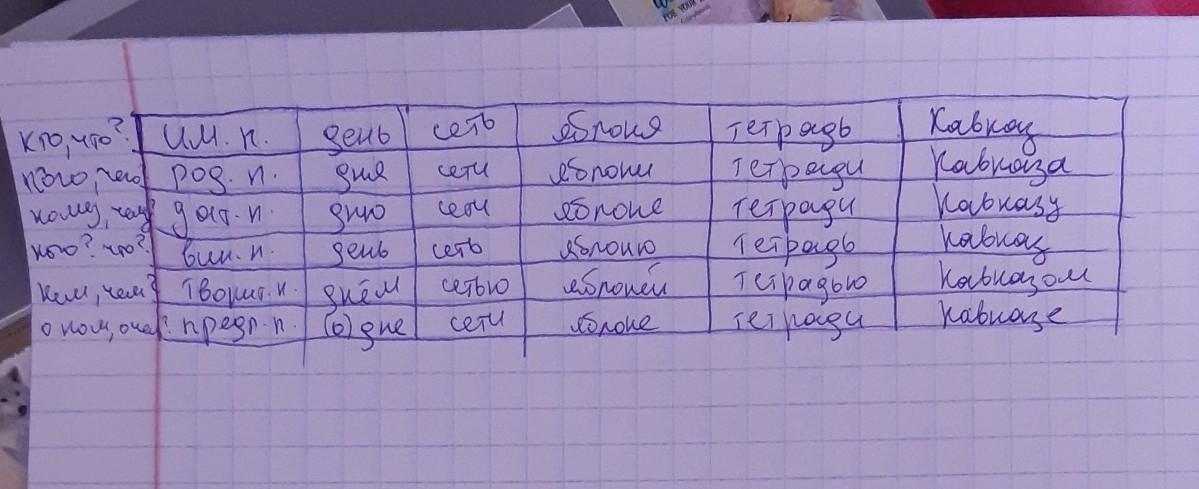 FOR YOUR
Кто, что? им. п. день сеть яблоня тетрадь Кавказ
кого, чего род. п. дня сети яблони тетради Кавказа
кому, чему? дат. п. дню сети яблоне тетради Кавказу
кого? что? вин. п. день сеть яблоню тетрадь Кавказ
кем, чем? творит. п. днём сетью яблоней тетрадью Кавказом
о ком, о чем? предл. п. (о) дне сети яблоне тетради Кавказе